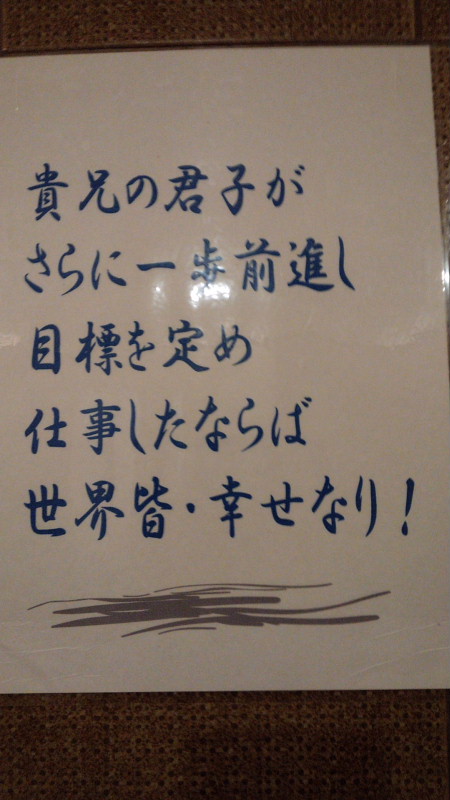 貴兄の君子が
さらに一歩前進し
目標を定め
仕事したならば
世界皆・幸せなり!